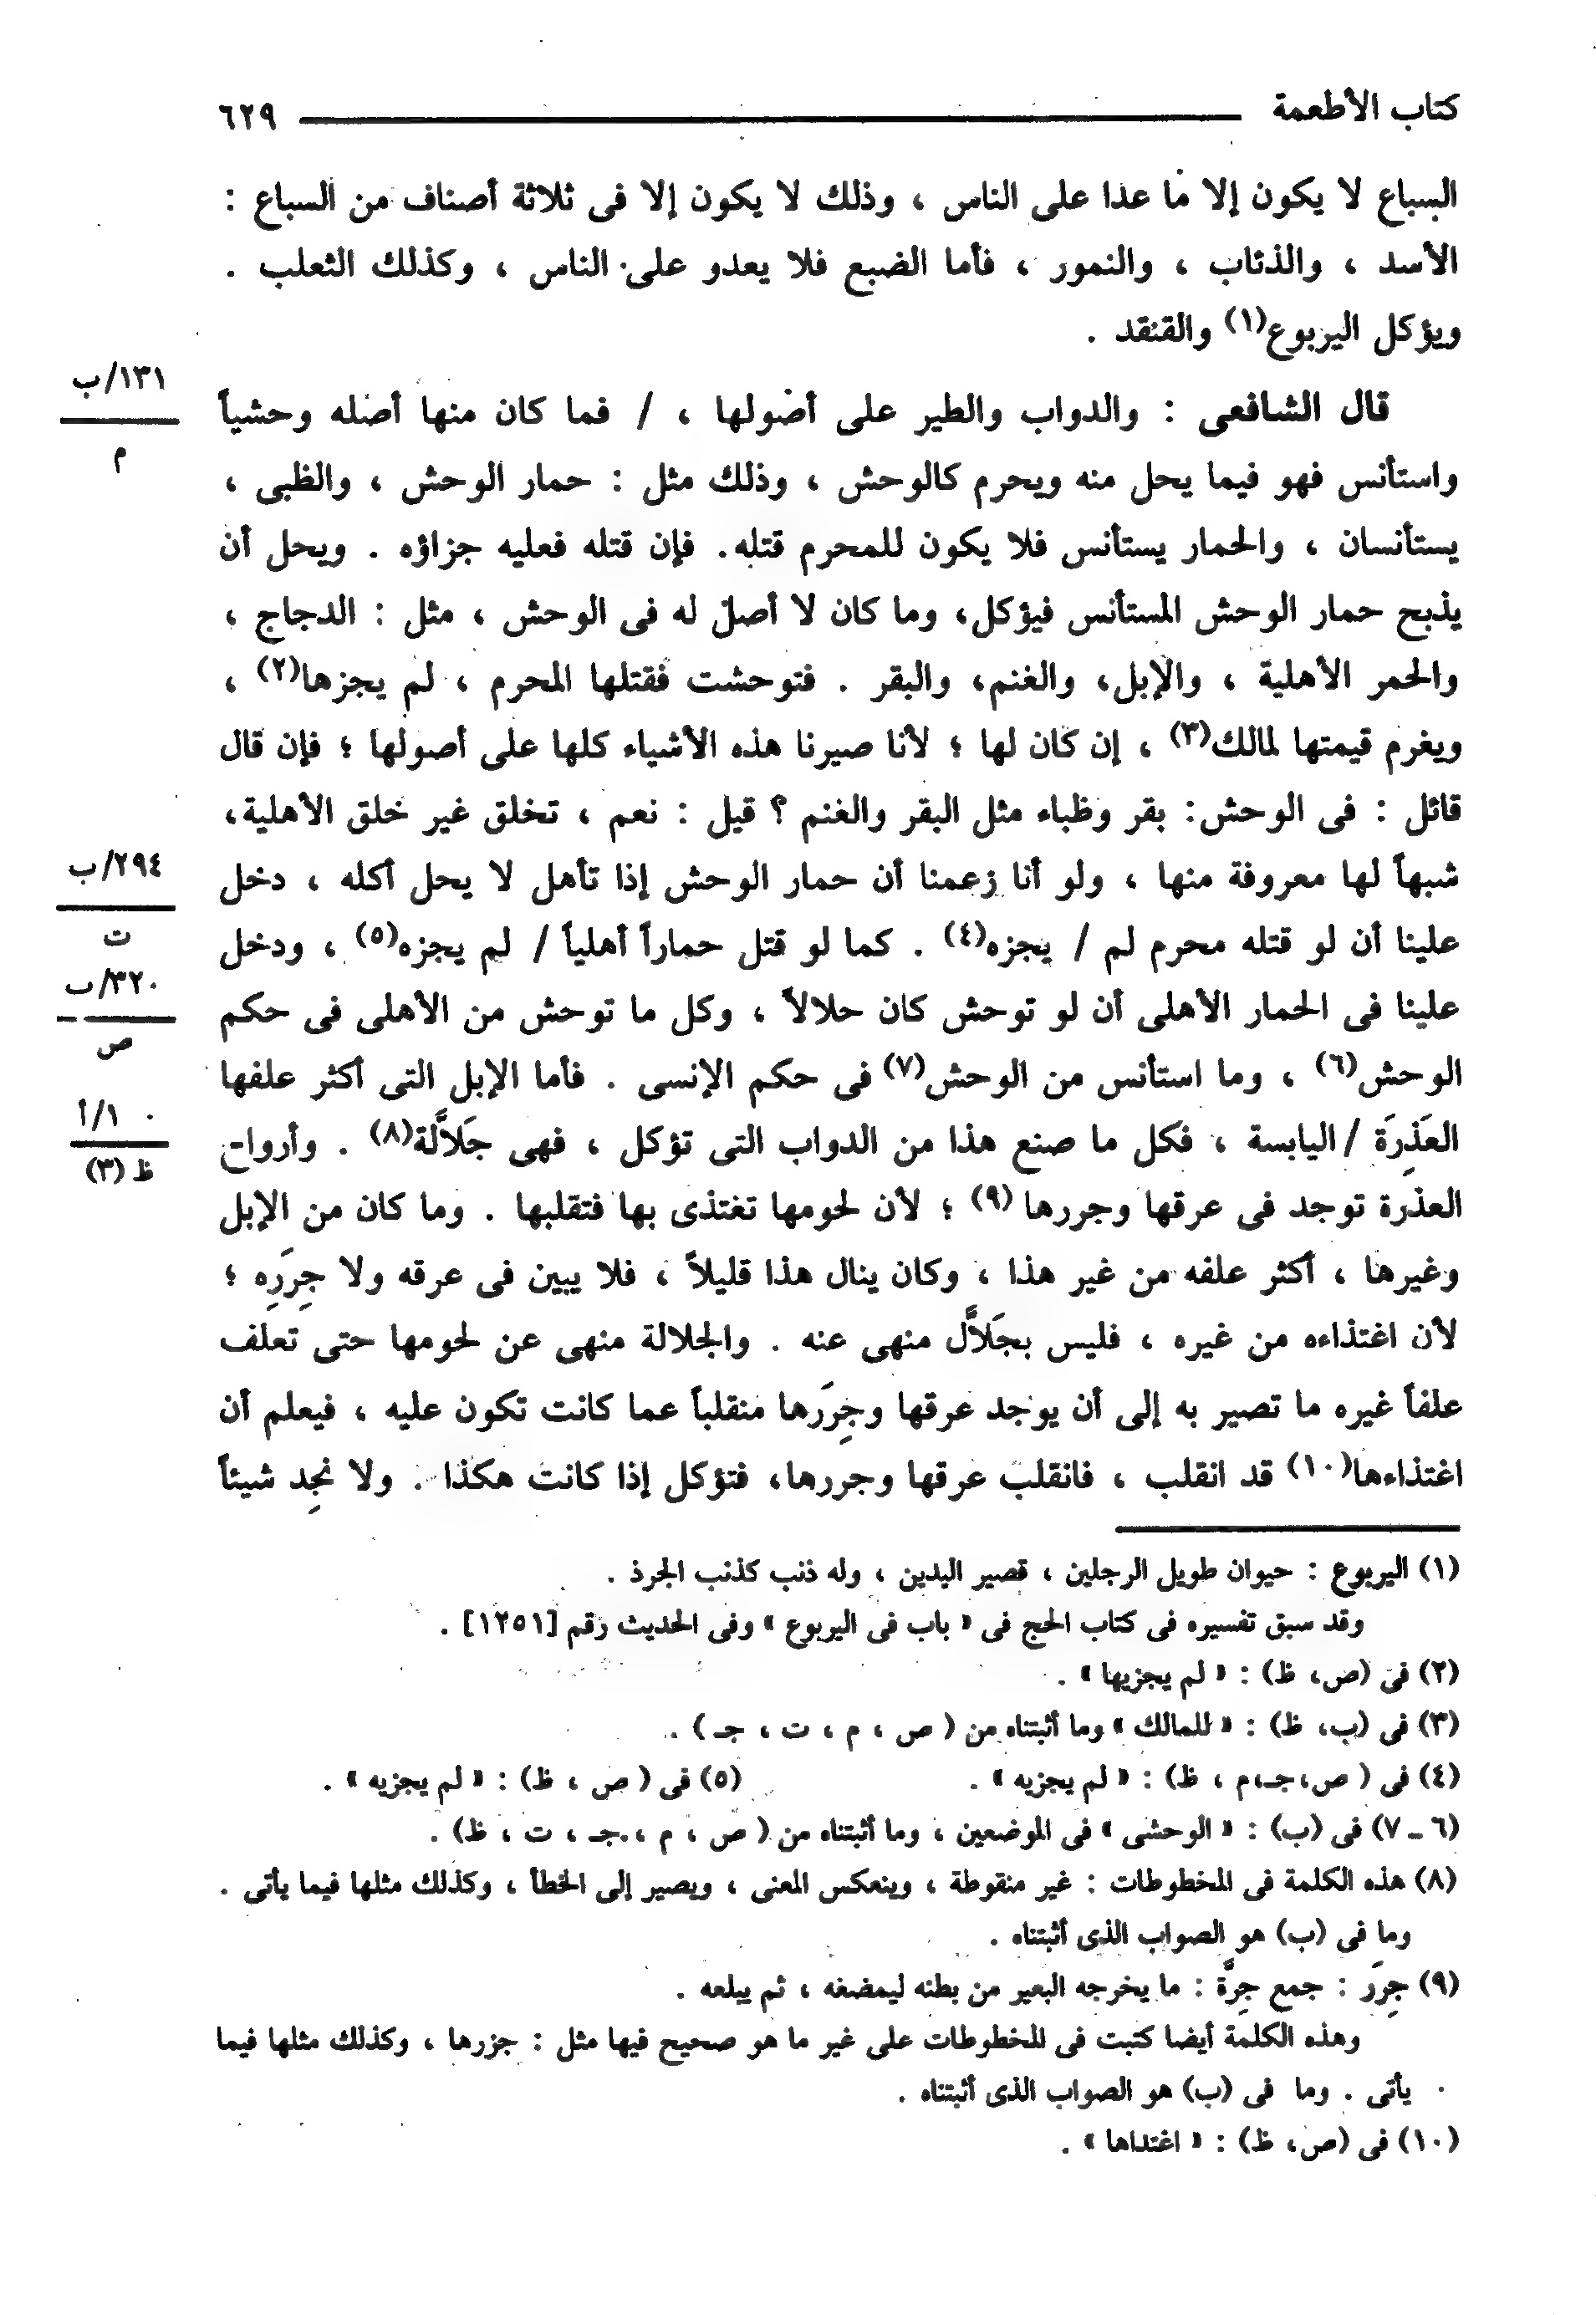 كتاب الأطعمة ٦٢٩
السباع لا يكون إلا ما عدا على الناس ، وذلك لا يكون إلا فى ثلاثة أصناف من السباع :
الأسد ، والذئاب ، والنمور ، فأما الضبع فلا يعدو على الناس ، وكذلك الثعلب .
ويؤكل اليربوع(١) والقنفد .
قال الشافعى : والدواب والطير على أصولها ، / فما كان منها أصله وحشياً
١٣١/ب
م
واستأنس فهو فيما يحل منه ويحرم كالوحش ، وذلك مثل : حمار الوحش ، والظبى ،
يستأنسان ، والحمار يستأنس فلا يكون للمحرم قتله. فإن قتله فعليه جزاؤه . ويحل أن
يذبح حمار الوحش المستأنس فيؤكل، وما كان لا أصل له فى الوحش ، مثل : الدجاج ،
والحمر الأهلية ، والإبل، والغنم، والبقر . فتوحشت فقتلها المحرم ، لم يجزها(٢) ،
ويغرم قيمتها لمالك(٣) ، إن كان لها ؛ لأنا صيرنا هذه الأشياء كلها على أصولها ؛ فإن قال
قائل : فى الوحش: بقر وظباء مثل البقر والغنم ؟ قيل : نعم ، تخلق غير خلق الأهلية،
شبهاً لها معروفة منها ، ولو أنا زعمنا أن حمار الوحش إذا تأهل لا يحل أكله ، دخل
٢٩٤/ب
ت
علينا أن لو قتله محرم لم / يجزه(٤) . كما لو قتل حماراً أهلياً / لم يجزه(٥) ، ودخل
٣٢٠/ب
ص
علينا فى الحمار الأهلى أن لو توحش كان حلالاً ، وكل ما توحش من الأهلى فى حكم
الوحش(٦) ، وما استأنس من الوحش(٧) فى حكم الإنسى . فأما الإبل التى أكثر علفها
العَذِرَة / اليابسة ، فكل ما صنع هذا من الدواب التى تؤكل ، فهى جَلاَّلة(٨) . وأرواح
١٠/أ
ظ (٣)
العذرة توجد فى عرقها وجررها (٩) ؛ لأن لحومها تغتذى بها فتقلبها . وما كان من الإبل
وغيرها ، أكثر علفه من غير هذا ، وكان ينال هذا قليلاً ، فلا يبين فى عرقه ولا جِرَرِه ؛
لأن اغتذاءه من غيره ، فليس بجَلاَّل منهى عنه . والجلالة منهى عن لحومها حتى تعلف
علفاً غيره ما تصير به إلى أن يوجد عرقها وجِرَرها منقلباً عما كانت تكون عليه ، فيعلم أن
اغتذاءها(١٠) قد انقلب ، فانقلب عرقها وجررها، فتؤكل إذا كانت هكذا . ولا نجِد شيئاً
(١) اليربوع : حيوان طويل الرجلين ، قصير اليدين ، وله ذنب كذنب الجرذ .
وقد سبق تفسيره فى كتاب الحج فى « باب فى اليربوع » وفى الحديث رقم [١٢٥١] .
(٢) فى (ص، ظ) : « لم يجزيها » .
(٣) فى (ب، ظ) : « للمالك » وما أثبتناه من ( ص ، م ، ت ، جـ ) .
(٤) فى ( ص،جـ،م ، ظ) : « لم يجزيه » . (٥) فى ( ص ، ظ) : « لم يجزيه » .
(٦ ـ ٧) فى (ب) : « الوحشى » فى الموضعين ، وما أثبتناه من ( ص ، م ، جـ ، ت ، ظ) .
(٨) هذه الكلمة فى المخطوطات : غير منقوطة ، وينعكس المعنى ، ويصير إلى الخطأ ، وكذلك مثلها فيما يأتى .
وما فى (ب) هو الصواب الذى أثبتناه .
(٩) جِرَر : جمع جِرَّة : ما يخرجه البعير من بطنه ليمضغه ، ثم يبلعه .
وهذه الكلمة أيضا كتبت فى المخطوطات على غير ما هو صحيح فيها مثل : جزرها ، وكذلك مثلها فيما
يأتى . وما فى (ب) هو الصواب الذى أثبتناه .
(١٠) فى (ص، ظ) : « اغتداها » .